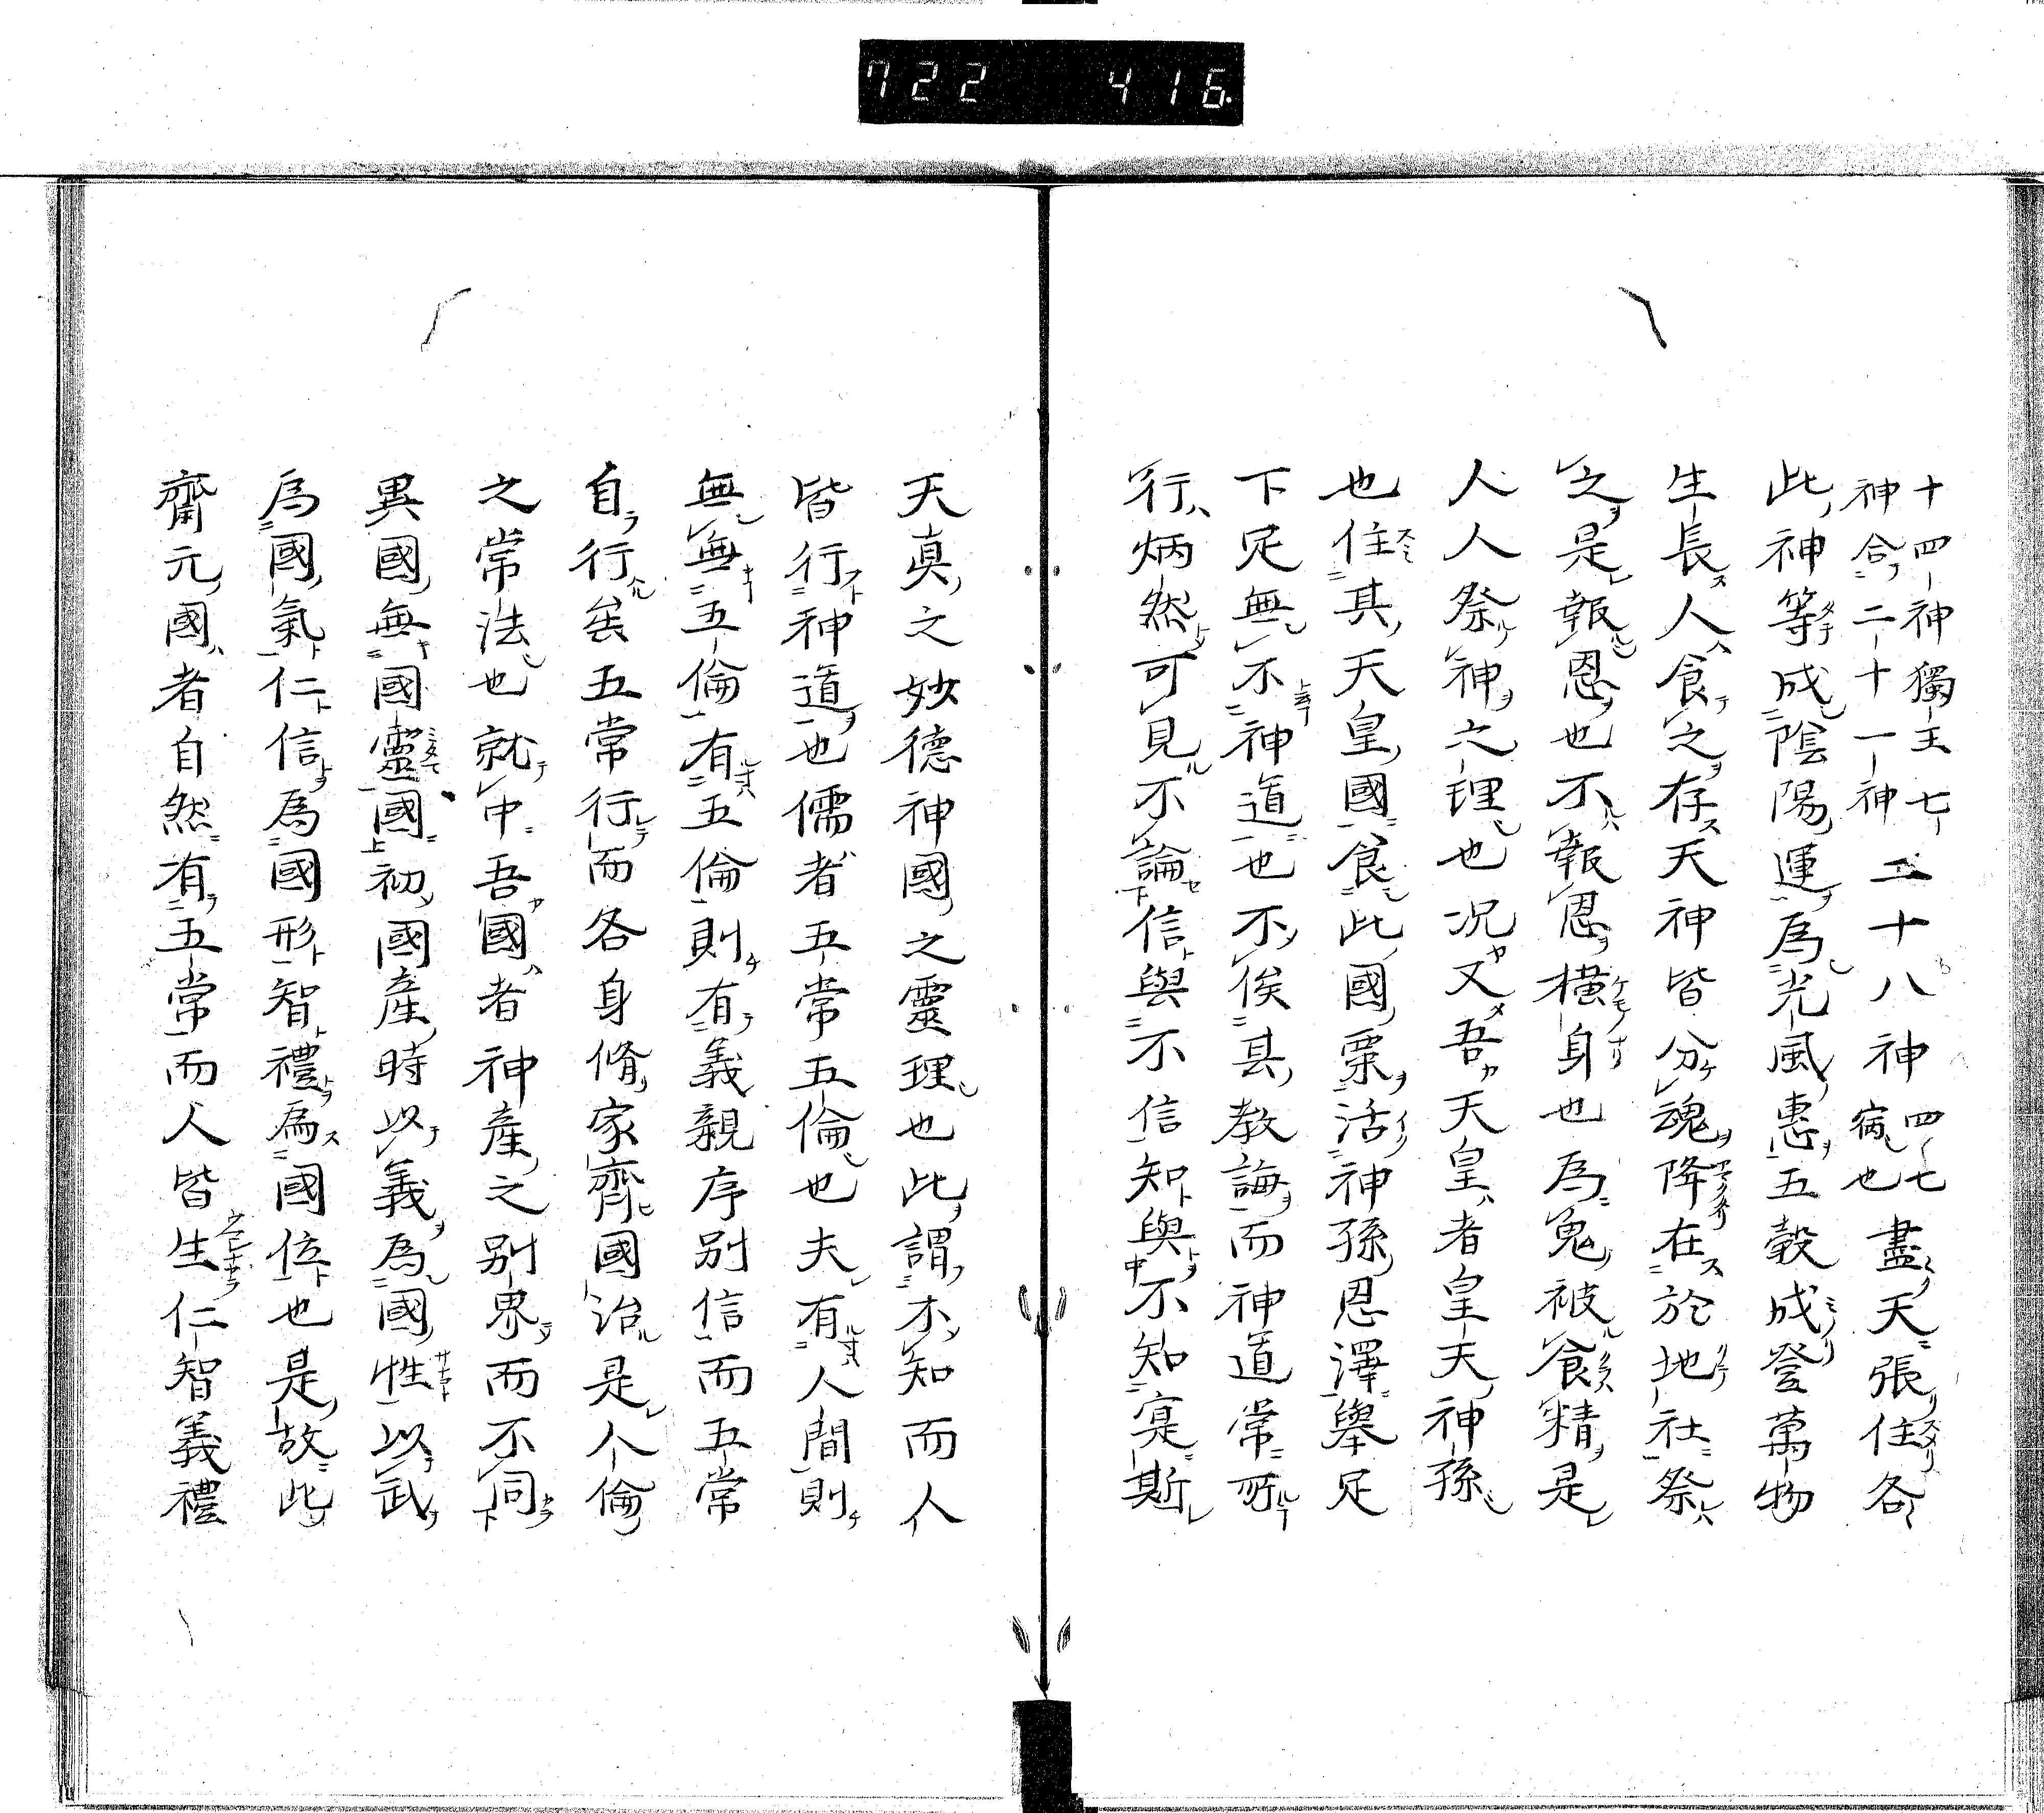 722 416
十四神獨王七
神合二十一神
二十八神
四七
宿也
盡天張住各
此神等成陰陽運為光風惠五穀成登萬物
生長人食之存天神皆分魂降在於地社祭
之是報恩也不報恩橫身也為鬼被食精是
人人祭神之理也況又吾天皇者皇天神孫
也住其天皇國食此國粟活神孫恩澤舉足
下足無不神道也不俟其教誨而神道常所
行炳然可見不論信與不信知與不知寔斯
天真之妙德神國之靈理也此謂不知而人
皆行神道也儒者五常五倫也夫有人間則
無無五倫有五倫則有義親序別信而五常
自行矣五常行而各身脩家齊國治是人倫
之常法也就中吾國者神產之別界而不同
異國無國靈國初國產時以義為國性以武
為國氣仁信為國形智禮為國位也是故此
齋元國者自然有五常而人皆生仁智義禮